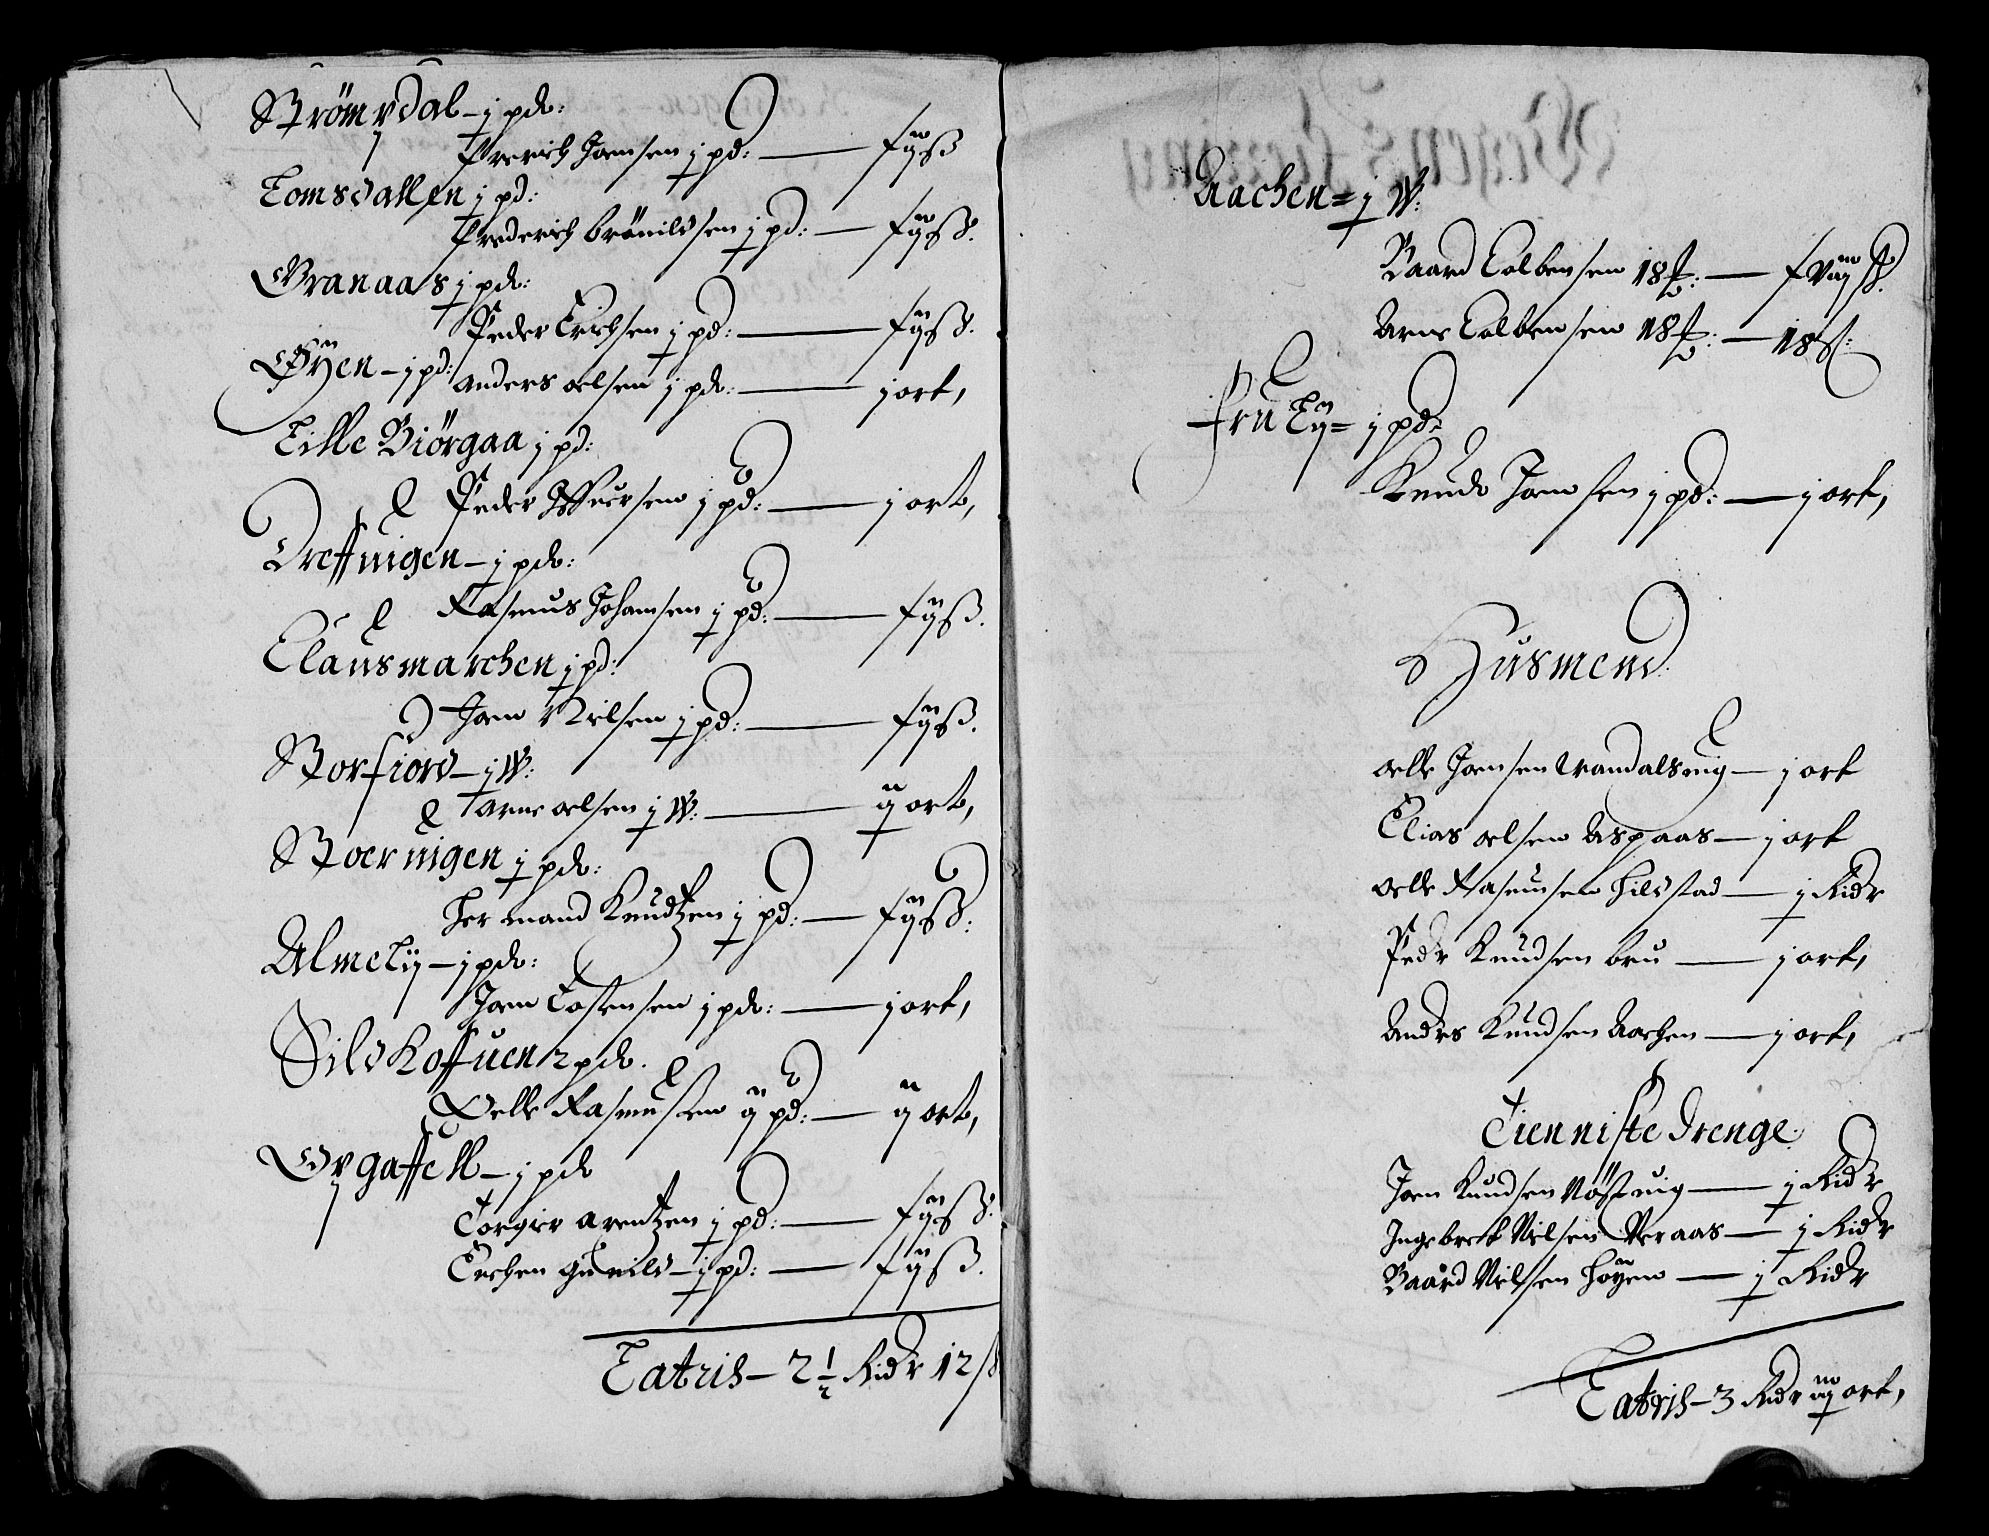 Strömsdal – j pd:
Frerich Joensen j pd: — xij ß
Tomsdallen j pd:
Frederich Brönildsen j pd: — xij ß.
Granaas j pd:
Peder Erichsen j pd: — xij ß.
Øyen – j pd: Anders oelsen j pd: — j ort,
Lille Biörgaa j pd:
Peder Iffuersen j pd: — j ort,
Dreffuigen – j pd:
Rasmus Johansen j pd: — xij ß.
Clausmarchen j pd:
Joen Nielsen j pd: — xij ß.
Storfiord – j W:
Arne oelsen j W: — ij ort,
Stoeruigen j pd:
Hermand Knudtzen j pd: — xij ß:
Almelij – j pd:
Joen Tostensen j pd: — j ort,
Sildhoffuen 2 pd.
Oelle Rasmusen ij pd: — ij ort,
– j pd
Torgier Arentzen j pd: — xij ß:
Enchen Gunild – j pd: — xij ß.
Latris – 2 1/2 Ridr 12 ß
Aachen = j W:
Baard Colbensen 18 — xviij ß.
Arne Colbensen 18 — 18 ß:
j pd =
Knud Joensen j pd: — j ort,
Husmend
oelle Joensen Wandalsuig — j ort
Elias oelsen Aspaas — j ort
oelle Rasmusen Hildstad — j Ridr
Pedr Knudsen bru — j ort,
Andrs Knudsen Aachen — j ort,
Tienniste drenge
Joen Knudsen Nöstuig — j Ridr
Ingebrect Nielsen Veraas — j Ridr
Baård Nielsen Höyen — j Ridr
Latris – 3 Ridr iij ort,